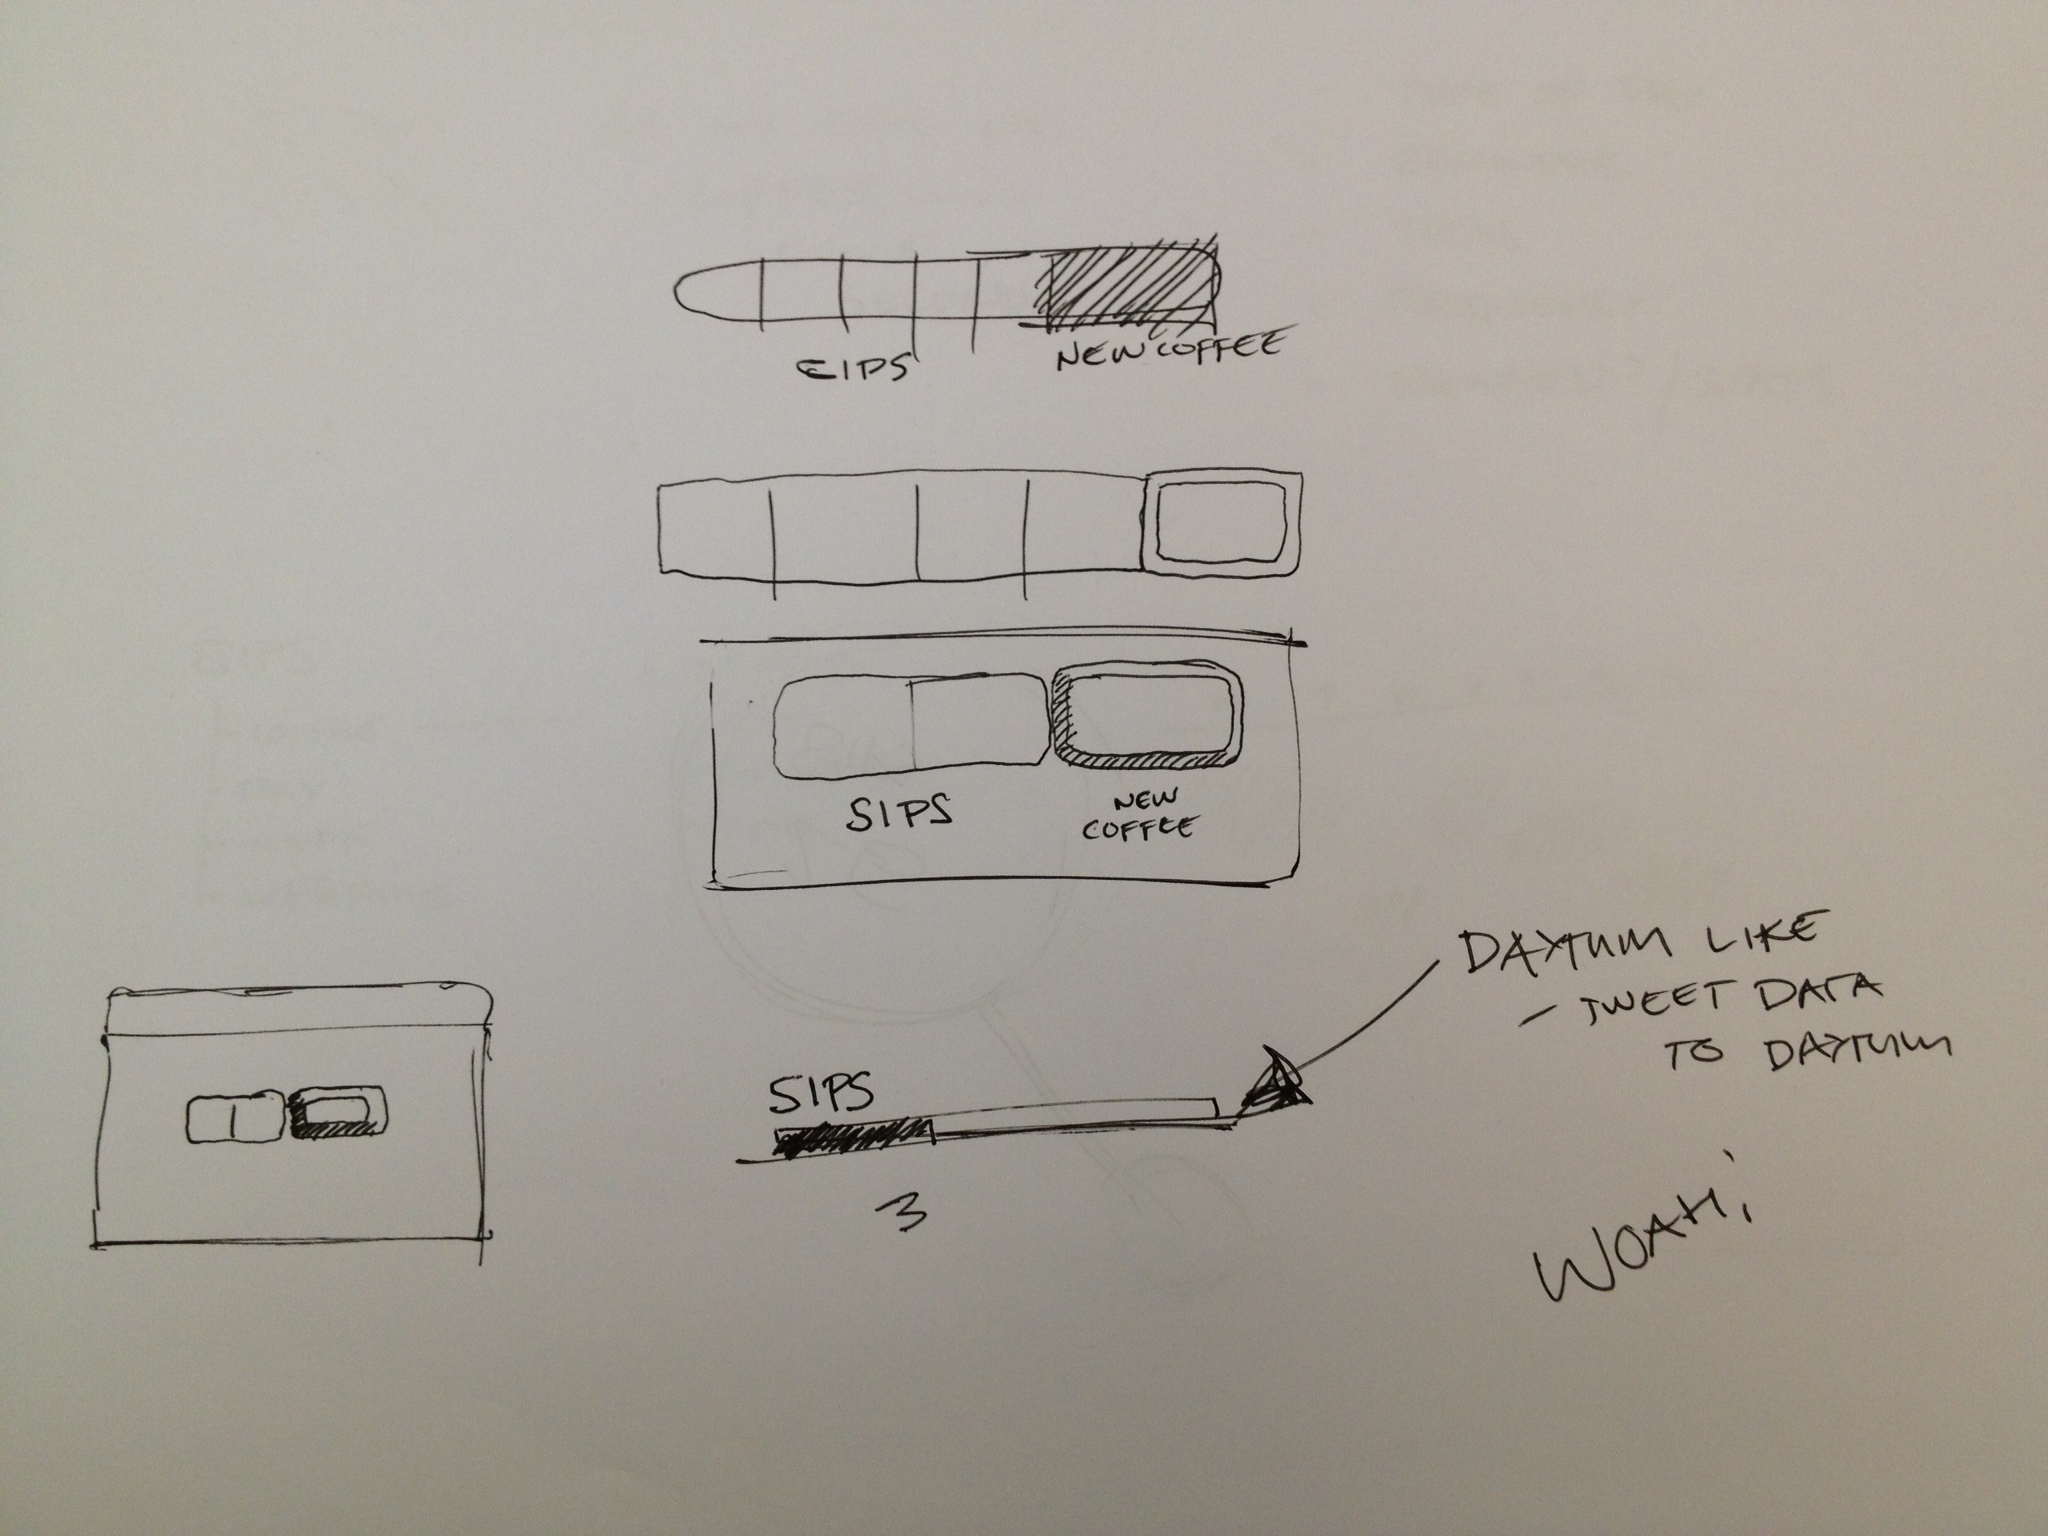 SIPS
NEW COFFEE
SIPS
NEW
COFFEE
DAYTUM LIKE
- TWEET DATA
TO DAYTUM
SIPS
3
WOAH!